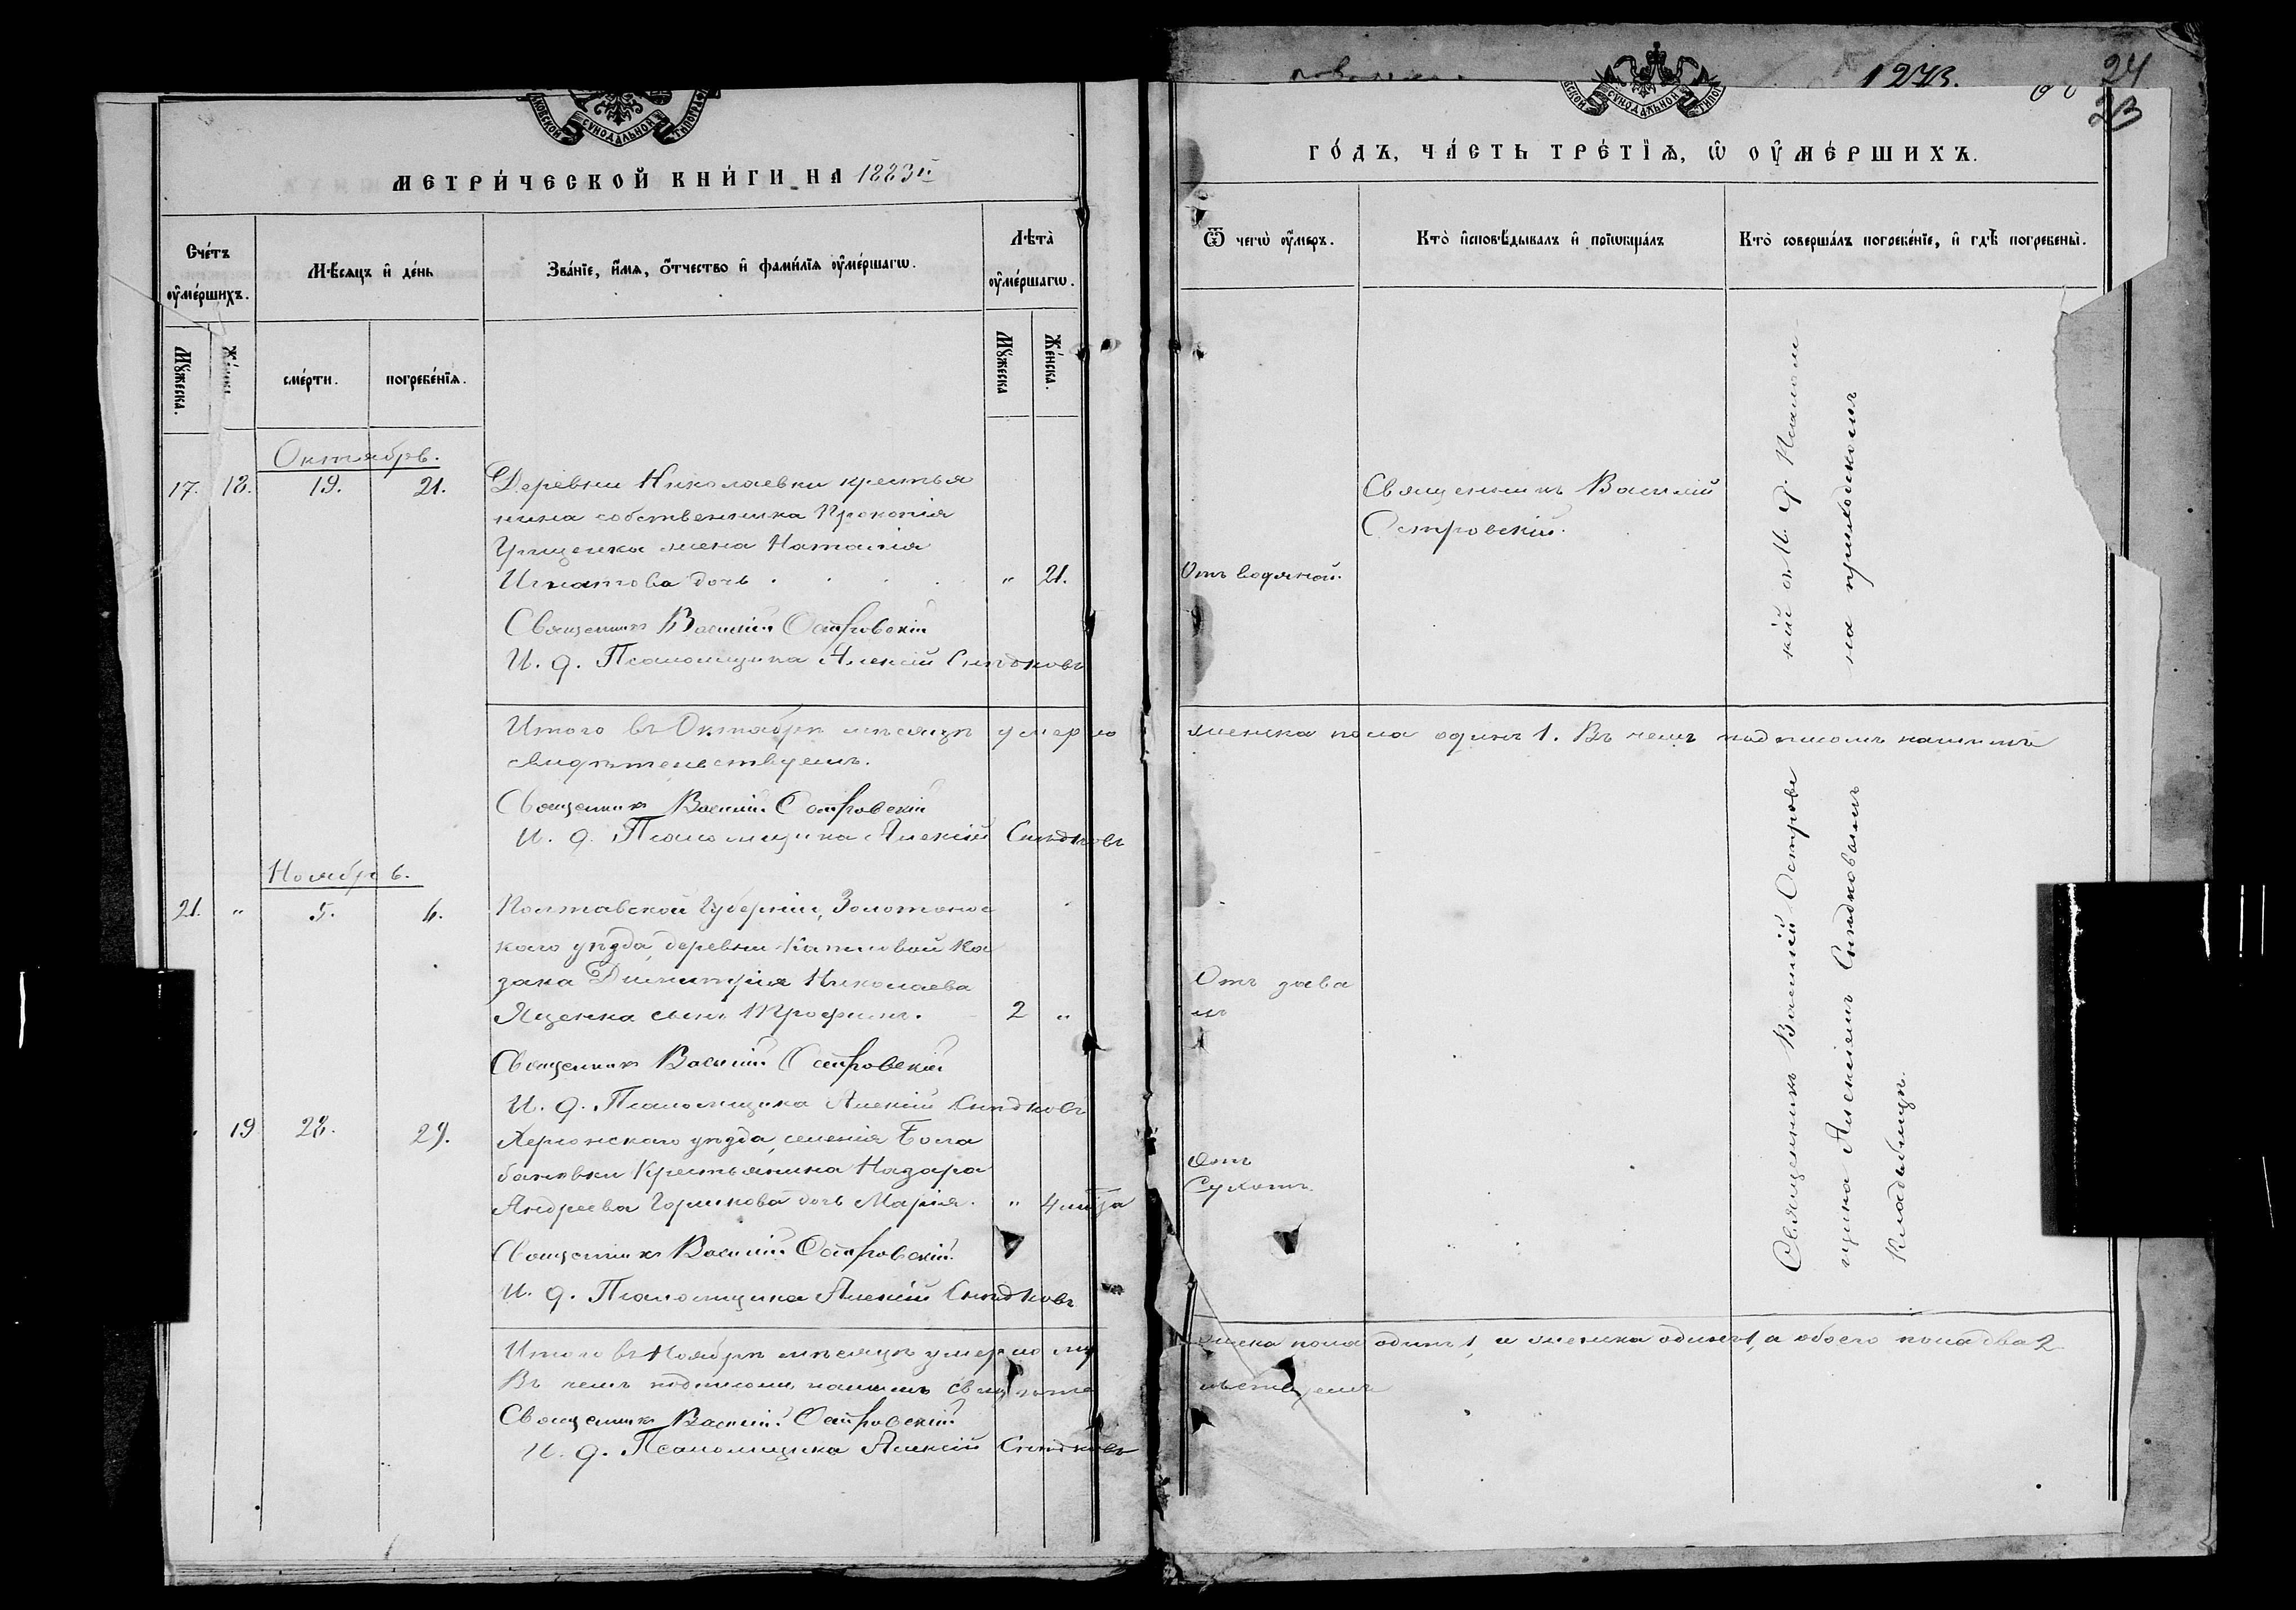 МОСКОВСКОЙ СѴНОДАЛЬНОЙ ТИПОГРАФ
МЕТРИ́ЧЕСКОЙ КНИ́ГИ НА 1883й
Сче́тъ оу҆ме́ршихъ.
Мѣ́сяцъ и҆ де́нь
Зва́нїе, и҆́мя, ѻ҆́тчество и҆ фами́лїя оу҆ме́ршагѡ.
Лѣта̀ оу҆ме́ршагѡ.
Мꙋ́жеска.
Же́нска.
сме́рти.
погребе́нїя.
Мꙋ́жеска
Же́нска.
Октябрь.
17. 18. 19. 21. Деревни Николаевки крестья
нина собственника Прокопія
Грищенка жена Наталія
Игнатова дочь . . . . „ 21.
Священникъ Василій Островскій
И. д. Псаломщика Алексій Снѣдковъ
Итого въ Октябрѣ мѣсяцѣ умерло
свидѣтельствуемъ.
Священникъ Василій Островскій
И. д. Псаломщика Алексій Снѣдковъ
Ноябрь.
21. „ 5. 6. Полтавской Губерніи, Золотонос
каго уѣзда, деревни Каписвой Ка
зака Димитрія Николаева
Яценка сынъ Трофимъ. 2 „
Священникъ Василій Островскій
И. д. Псаломщика Алексій Снѣдковъ
19 28. 29. Херсонскаго уѣзда, селенія Бала
бановки Крестьянина Назара
Андреева Горикова дочь Марія. „ 4 мѣца
Священникъ Василій Островскій.
И. д. Псаломщика Алексій Снѣдковъ
Итого въ Ноябрѣ мѣсяцѣ умерло му
Въ чемъ подписомъ нашимъ свидѣте
Священникъ Василій Островскій
И. д. Псаломщика Алексій Снѣдковъ
24
23
СКОЙ СѴНОДАЛЬНОЙ ТИПОГ
ГО́ДЪ, ЧА́СТЬ ТРЕ́ТЇѦ, Ѡ҆ ОУ҆МЕ́РШИХЪ.
Ѿ чегѡ̀ оу҆́меръ.
Кто̀ и҆сповѣ́дывалъ и҆ прїѡбща́лъ
Кто̀ соверша́лъ погребе́нїе, и҆ гдѣ̀ погребены̀.
Священникъ Василій
Островскій.
Отъ водяной.
женска пола одинъ 1. Въ чемъ подписомъ нашимъ
Отъ зава
лъ
Отъ
Сухотъ
Священникъ Василій Островс
кій съ И. д. Псаломщ
щика Алексіемъ Снѣдковымъ
на приходскомъ
Кладбищѣ.
жска пола одинъ 1, и женска одинъ 1, а обоего пола два 2.
льствуемъ